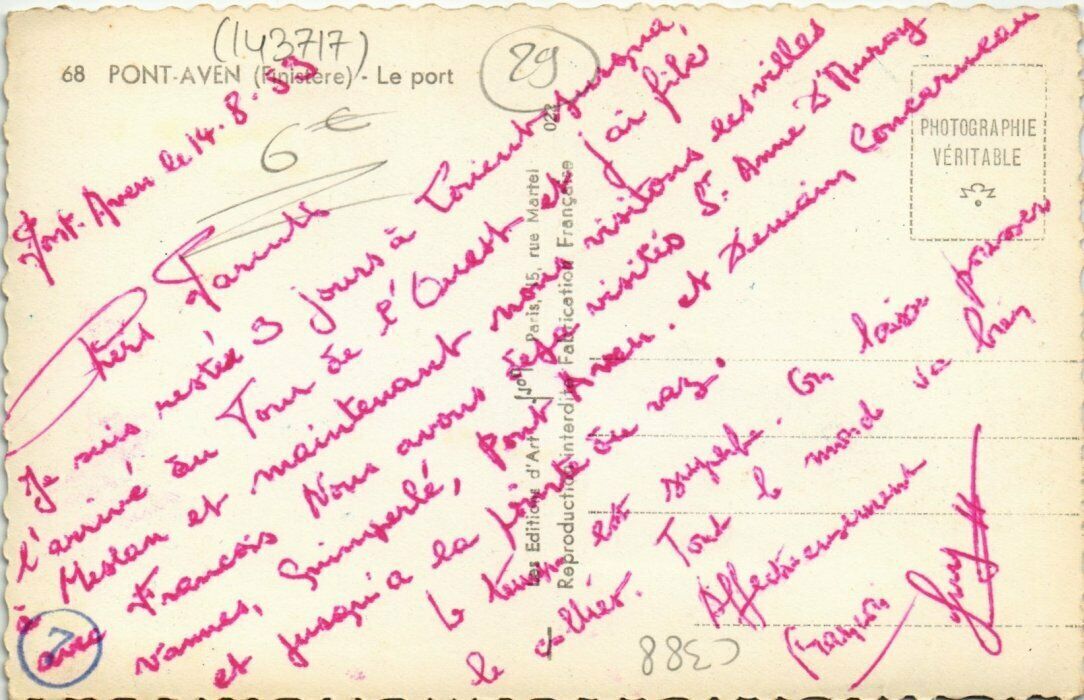 (143717)
29
68 PONT-AVEN (Finistère) - Le port
6€
022
PHOTOGRAPHIE
VÉRITABLE
Les Editions d'Art Paris, 15, rue Martel
Reproduction interdite Fabrication Française
Pont-Aven le 14.8.53
Chers Parents
Je suis restée 3 jours à Lorient jusqua,
l'arrivé du Tour de l'Ouest et j'ai filé
à Meslan et maintenant nous visitons les villes
avec Francois Nous avons déja visités St. Anne D'Auray
vannes, Quimperlé, Pont Aven. et Demain Concarneau
et jusqu'a la pointe du raz.
le temps est superbe. On laisse pousser
le collier. Tout le monde va bien
Affectueusement
François
7
C388